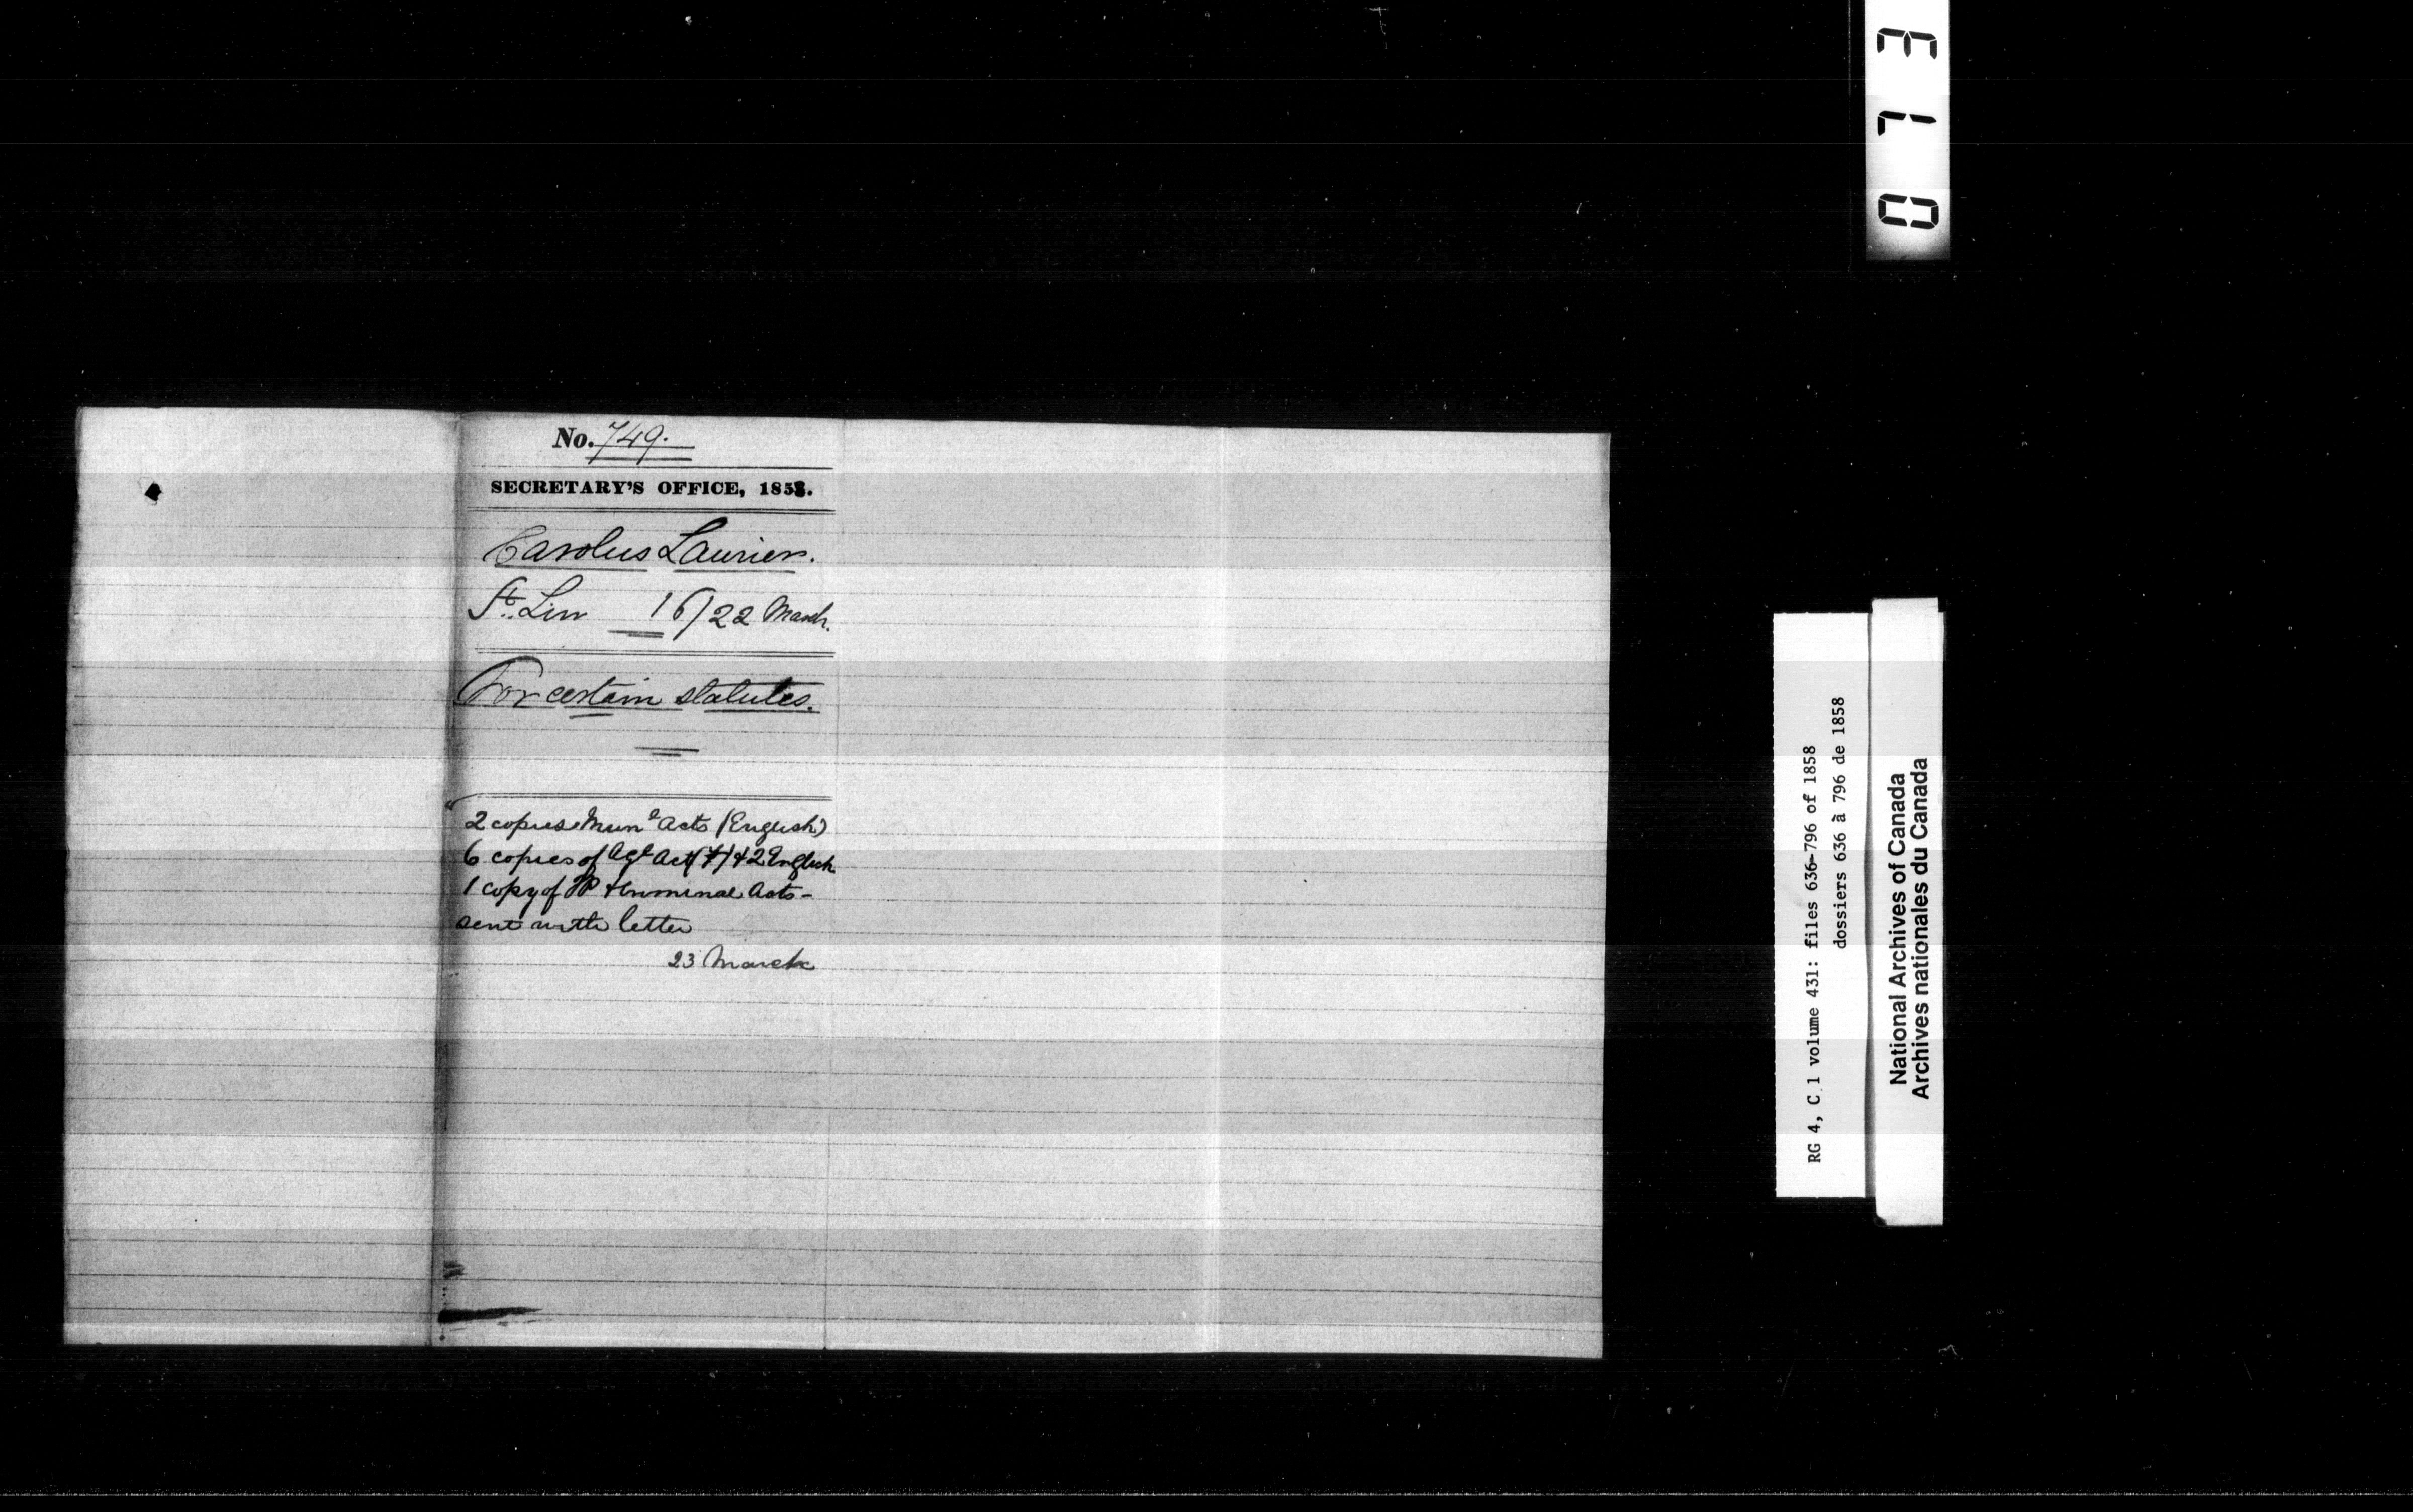 No. 749.
SECRETARY'S OFFICE, 1858.
Carolus Laurier.
St. Lin 16/22 March.
For certain statutes.
2 copies Munl Acts (English)
6 copies of Agl Act (F) & 2 English
1 copy of JP & Criminal Acts -
sent with letter
23 March
0 7 3
RG 4, C 1 volume 431: files 636-796 of 1858
dossiers 636 à 796 de 1858
National Archives of Canada
Archives nationales du Canada